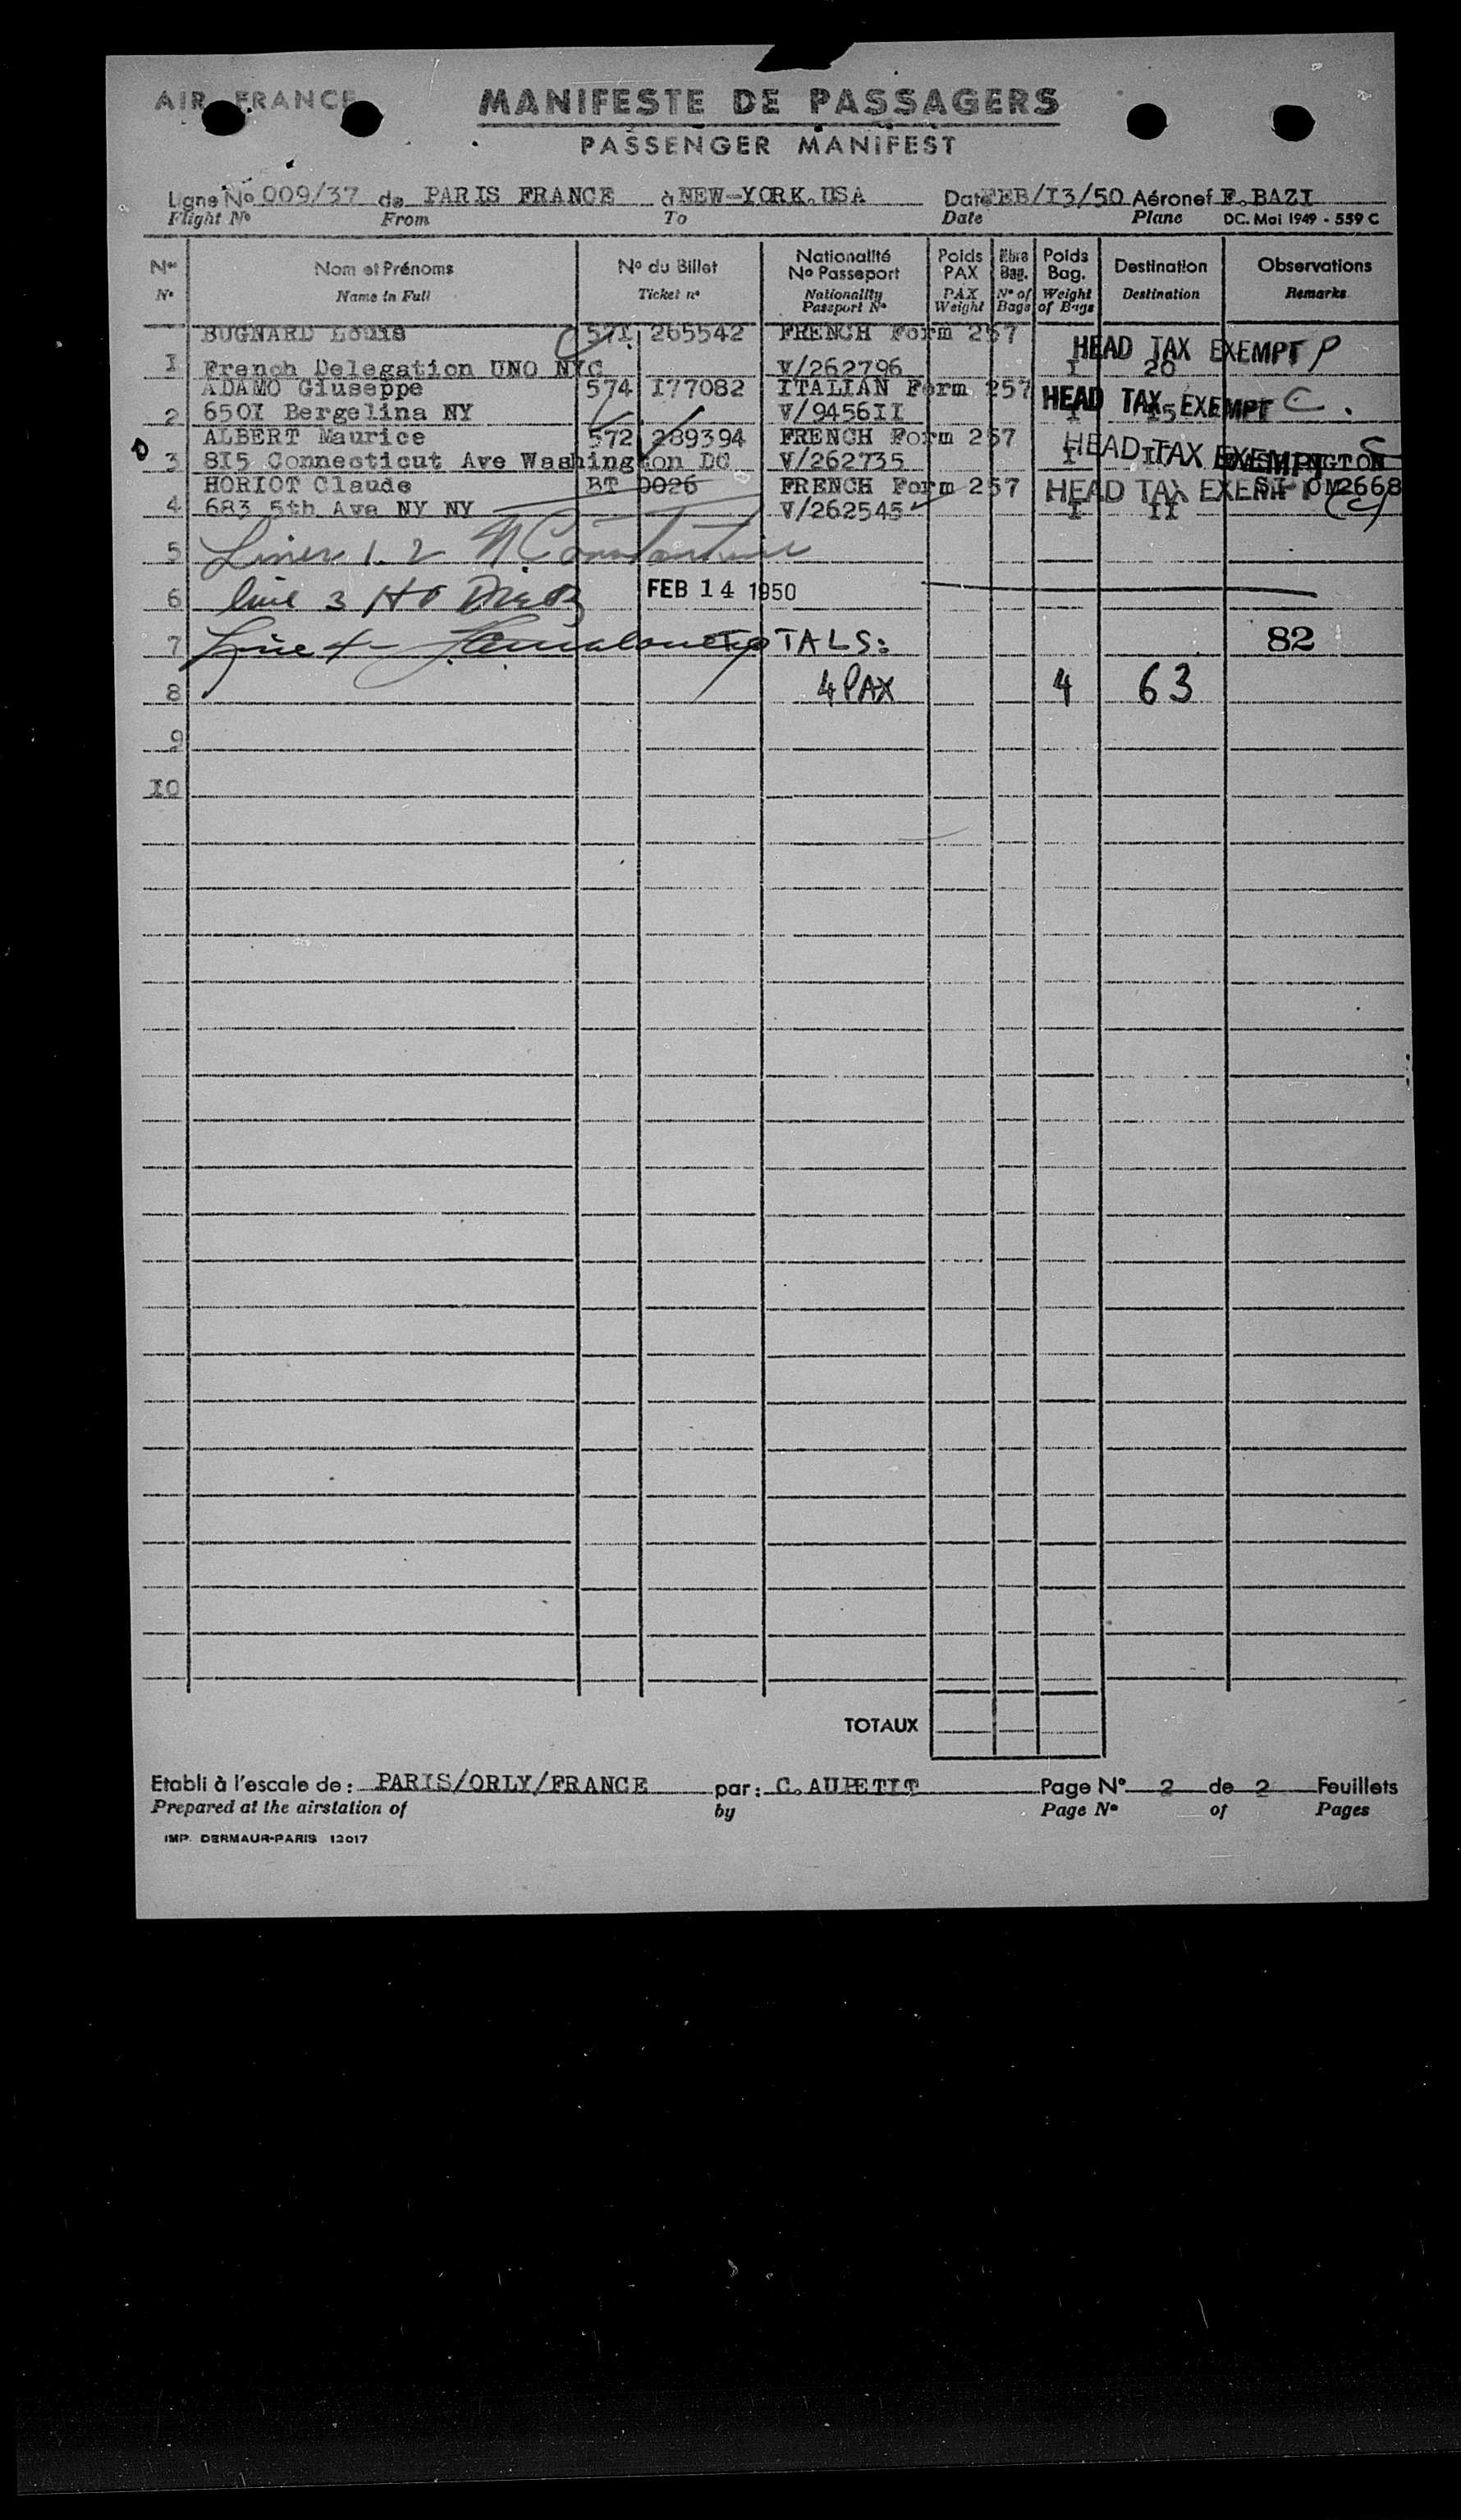 AIR FRANCE
MANIFESTE DE PASSAGERS
PASSENGER MANIFEST
Ligne No 009/37 de PARIS FRANCE à NEW-YORK.USA Date FEB/I3/50 Aéronef F.BAZI
Flight No From To Date Plane DC. Mai 1949 - 559 C
Nos Nom et Prénoms No du Billet Nationalité No Passeport Poids PAX Nbre Bag. Poids Bag. Destination Observations
No Name in Full Ticket no Nationality Passport No PAX Weight No of Bags Weight of Bags Destination Remarks
BUGNARD Louis 57I 265542 FRENCH Form 257
HEAD TAX EXEMPT P
I French Delegation UNO NYC V/262796 I 20
ADAMO Giuseppe 574 I77082 ITALIAN Form 257
HEAD TAX EXEMPT C.
2 650I Bergelina NY V/9456II I I5
ALBERT Maurice 572 289394 FRENCH Form 257
HEAD TAX EXEMPT
3 8I5 Connecticut Ave Washington DC V/262735 I
HORIOT Claude BT 0026 FRENCH Form 257
HEAD TAX EXEMPT
4 683 5th Ave NY NY V/262545 I II
5 Lines 1. 2
6 line 3 FEB 14 1950
7 Line 4 TOTALS: 82
8 4 PAX 4 63
9
IO
TOTAUX
Etabli à l'escale de: PARIS/ORLY/FRANCE par: C.AUPETIT Page No 2 de 2 Feuillets
Prepared at the airstation of by Page No of Pages
IMP. DERMAUR-PARIS 12017